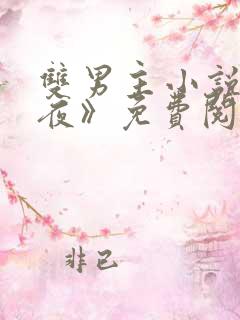 雙男主小說
夜》免費閱
非己